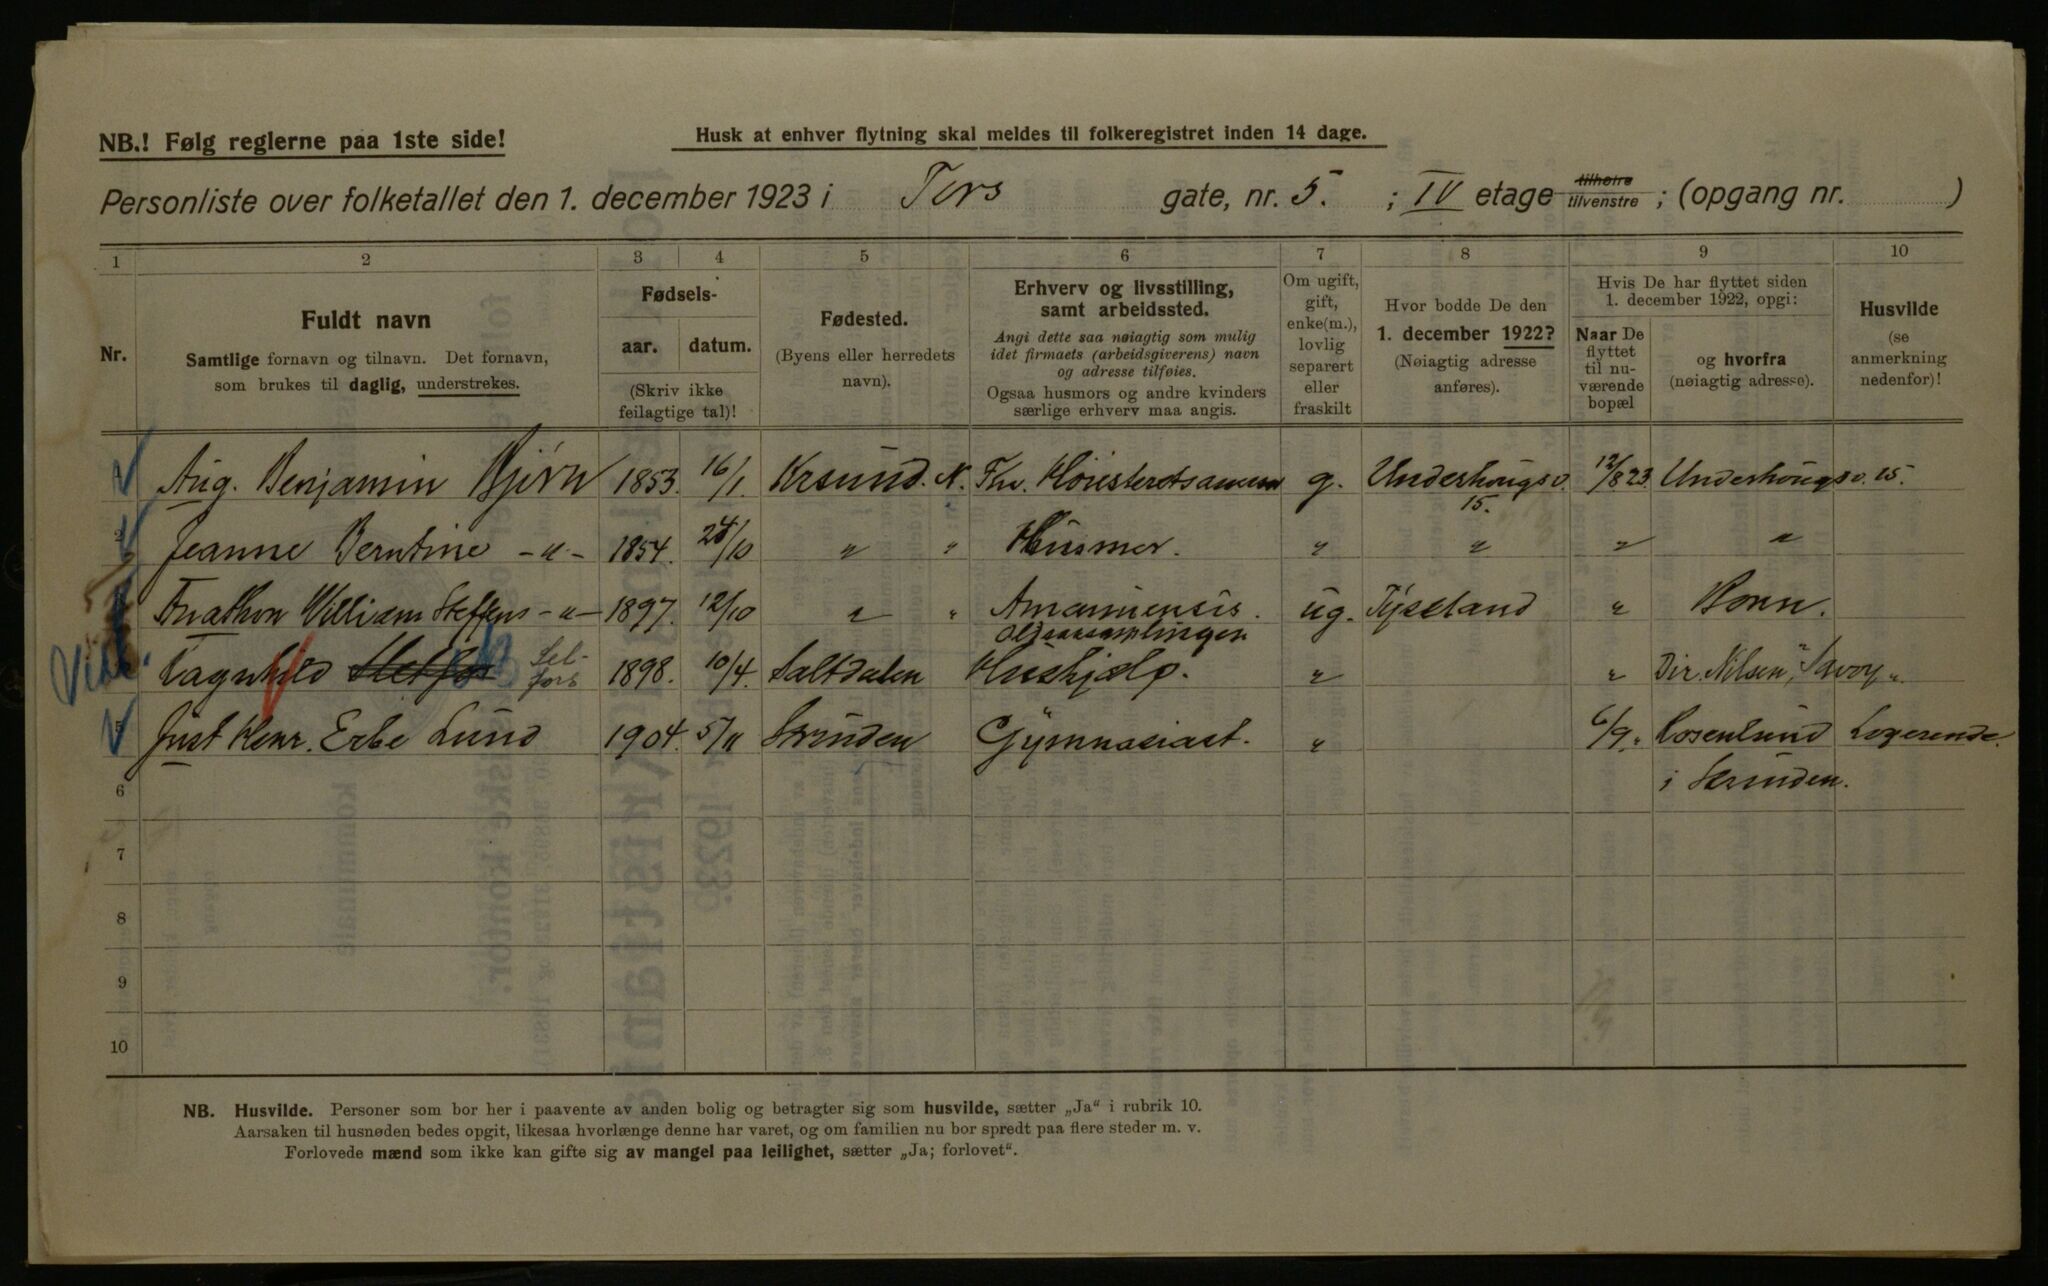 NB.! Følg reglerne paa 1ste side!
Husk at enhver flytning skal meldes til folkeregistret inden 14 dage.
Personliste over folketallet den 1. december 1923 i Tors gate, nr. 5. ; IV etage tilhøire tilvenstre ; (opgang nr. )
1 2 3 4 5 6 7 8 9 10
Nr.
Fuldt navn
Samtlige fornavn og tilnavn. Det fornavn,
som brukes til daglig, understrekes.
Fødsels-
aar. datum.
(Skriv ikke
feilagtige tal)!
Fødested.
(Byens eller herredets
navn).
Erhverv og livsstilling,
samt arbeidssted.
Angi dette saa nøiagtig som mulig
idet firmaets (arbeidsgiverens) navn
og adresse tilføies.
Ogsaa husmors og andre kvinders
særlige erhverv maa angis.
Om ugift,
gift,
enke(m.),
lovlig
separert
eller
fraskilt
Hvor bodde De den
1. december 1922?
(Nøiagtig adresse
anføres).
Hvis De har flyttet siden
1. december 1922, opgi:
Naar De
flyttet
til nu-
værende
bopæl
og hvorfra
(nøiagtig adresse).
Husvilde
(se
anmerkning
nedenfor)!
Aug. Benjamin Bjørn 1853. 16/1. Krsund. N. Fhv. g. Underhougsv. 15. 12/8 23. Underhougsv. 15.
2 Jeanne Berntine -„- 1854. 24/10 „ „ Husmor. „ „ „ „
William Steffens -„- 1897. 12/10 „ „ Amanuensis. Oldsaksamlingen ug. „ Bonn.
Ragnhild Sel-
fors 1898. 10/4. Saltdalen Hushjælp. „ „ Dir. Nilsen, „Savoy„.
5 Just Henr. Erbe Lund 1904. 5/11 Strinden Gymnasiast. „ 6/9. „ Rosenlund Logerende.
i Strinden.
6
7
8
9
10
NB. Husvilde. Personer som bor her i paavente av anden bolig og betragter sig som husvilde, sætter „Ja“ i rubrik 10.
Aarsaken til husnøden bedes opgit, likesaa hvorlænge denne har varet, og om familien nu bor spredt paa flere steder m. v.
Forlovede mænd som ikke kan gifte sig av mangel paa leilighet, sætter „Ja; forlovet“.